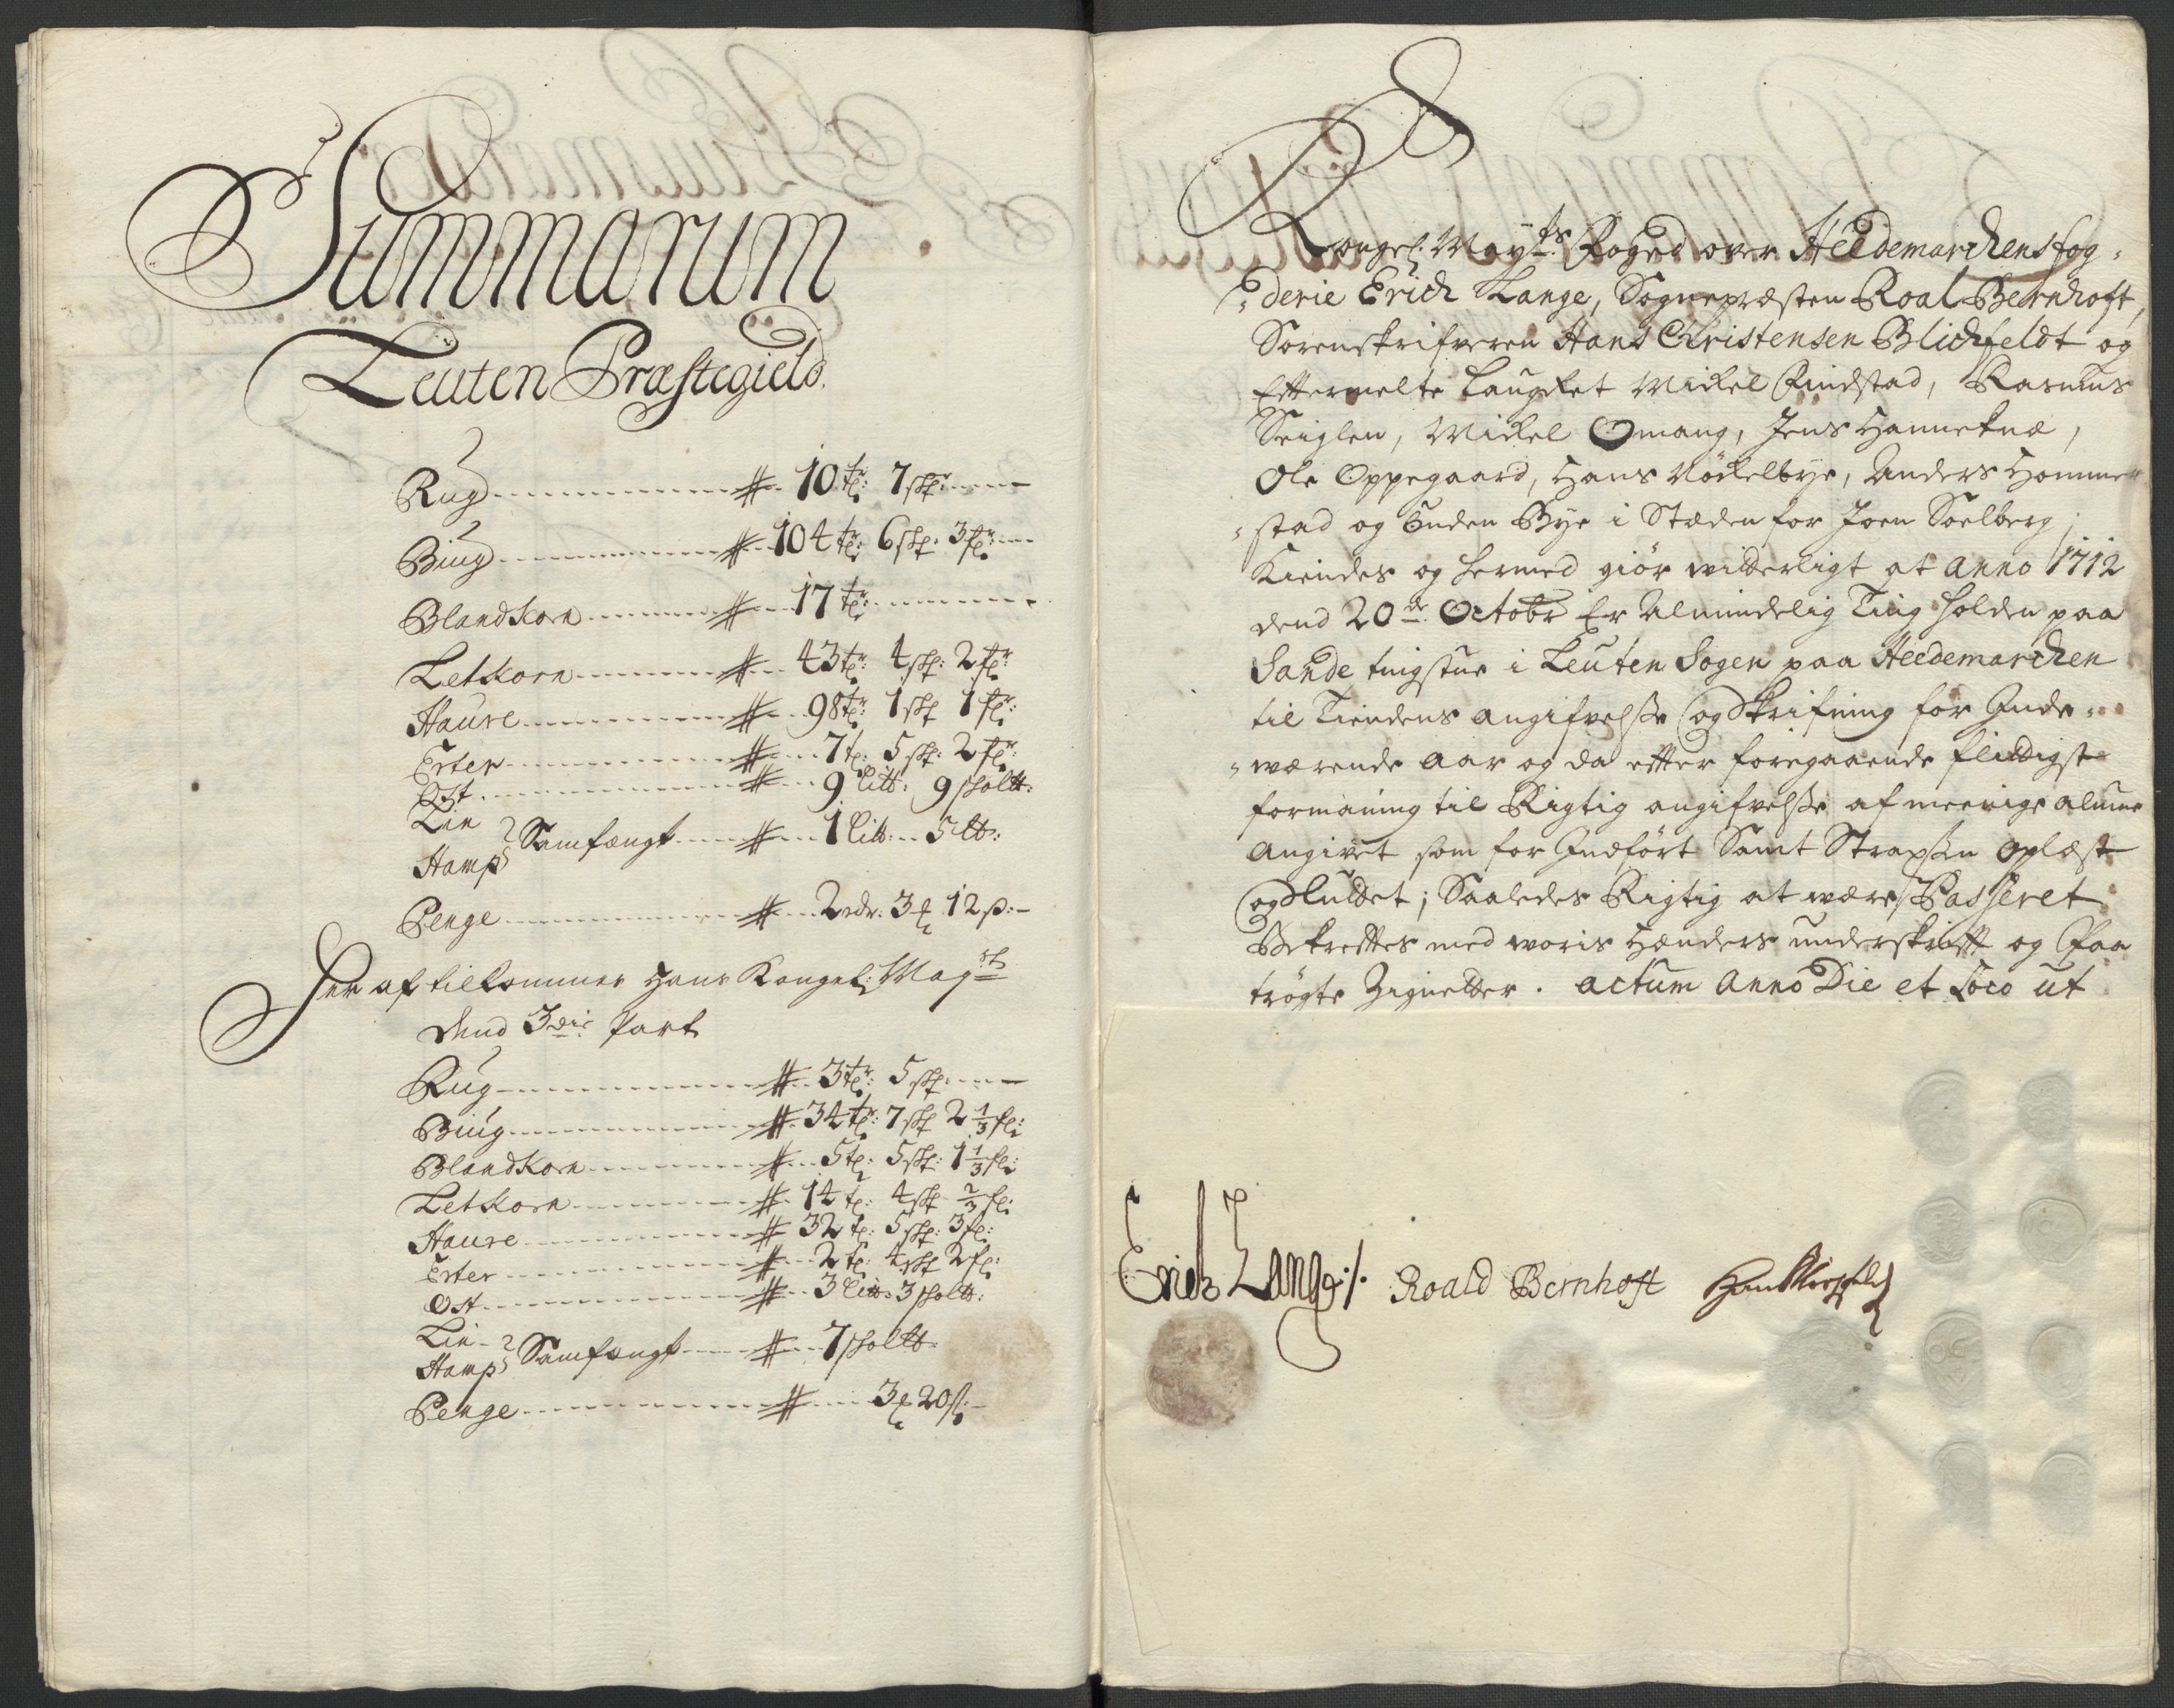 Summarum
Leuten Præstegield.
Rug 10 tr: 7 skp:
Biug 104 tr: 6 skp: 3 fr:
Blandkorn 17 tr:
Letkorn 43 tr: 4 skp: 2 fr:
Haure 98 tr: 1 skp 1 fr:
Erter 7 t: 5 skp: 2 fr:
Ost 9 litt: 9 skoltt:
Lin
Hamp Samfængt 1 litt: 5 ltt:
Penge 2 rdr: 3 ꝑ 12 ß:
Her af tilkommer Hans Kongel: Mayts
Dend 3die Part
Rug 3 tr: 5 skp:
Biug 34 tr: 7 skp 2 1/3 fr:
Blandkorn 5 t: 5 skp: 1 1/3 fr:
Letkorn 14 t: 4 skp 2/3 fr:
Haure 32 t: 5 skp: 3 fr:
Erter 2 t: 4 skp 2 fr:
Ost 3 litt: 3 skoltt:
Lin
Hamp Samfængt 7 skoltt.
Penge 3 ꝑ 20 ß:
Kongel. Mayts: Foged over Heedemarchens fog-
derie Erich Lange, Sognepræsten Roal Bernhoft,
Sorenskrifveren Hans Christensen Blichfeldt og
Efftermelte Laugret Mickel Findstad, Rasmus
Seiglen, Mickel Omang, Jens Hanneknæ,
Ole Oppegaard, Hans Nöckelbye, Anders Hommer
stad og Enden Bye i Stæden for Joen Soelberg;
Kiendes og hermed giör witterligt at Anno 1712
dend 20de Octobr Er Almindelig Ting holden paa
Sande tingstue i Leuten Sogen paa Heedemarchen
til Tiendens angifvelße og Skrifning for Inde-
værende Aar og da effter foregaaende flittigste
formaning til Rigtig angifvelße af meenige almue
Angivet som for Indfört Samt Strax oplæst
og Sluttet; Saaledes Rigtig at være Passeret
Bekreffter med woris Hænders underskrifft og Paa
trögte Zignetter. Actum Anno Die et Loco ut
Erich Lange
Roald Bernhoft